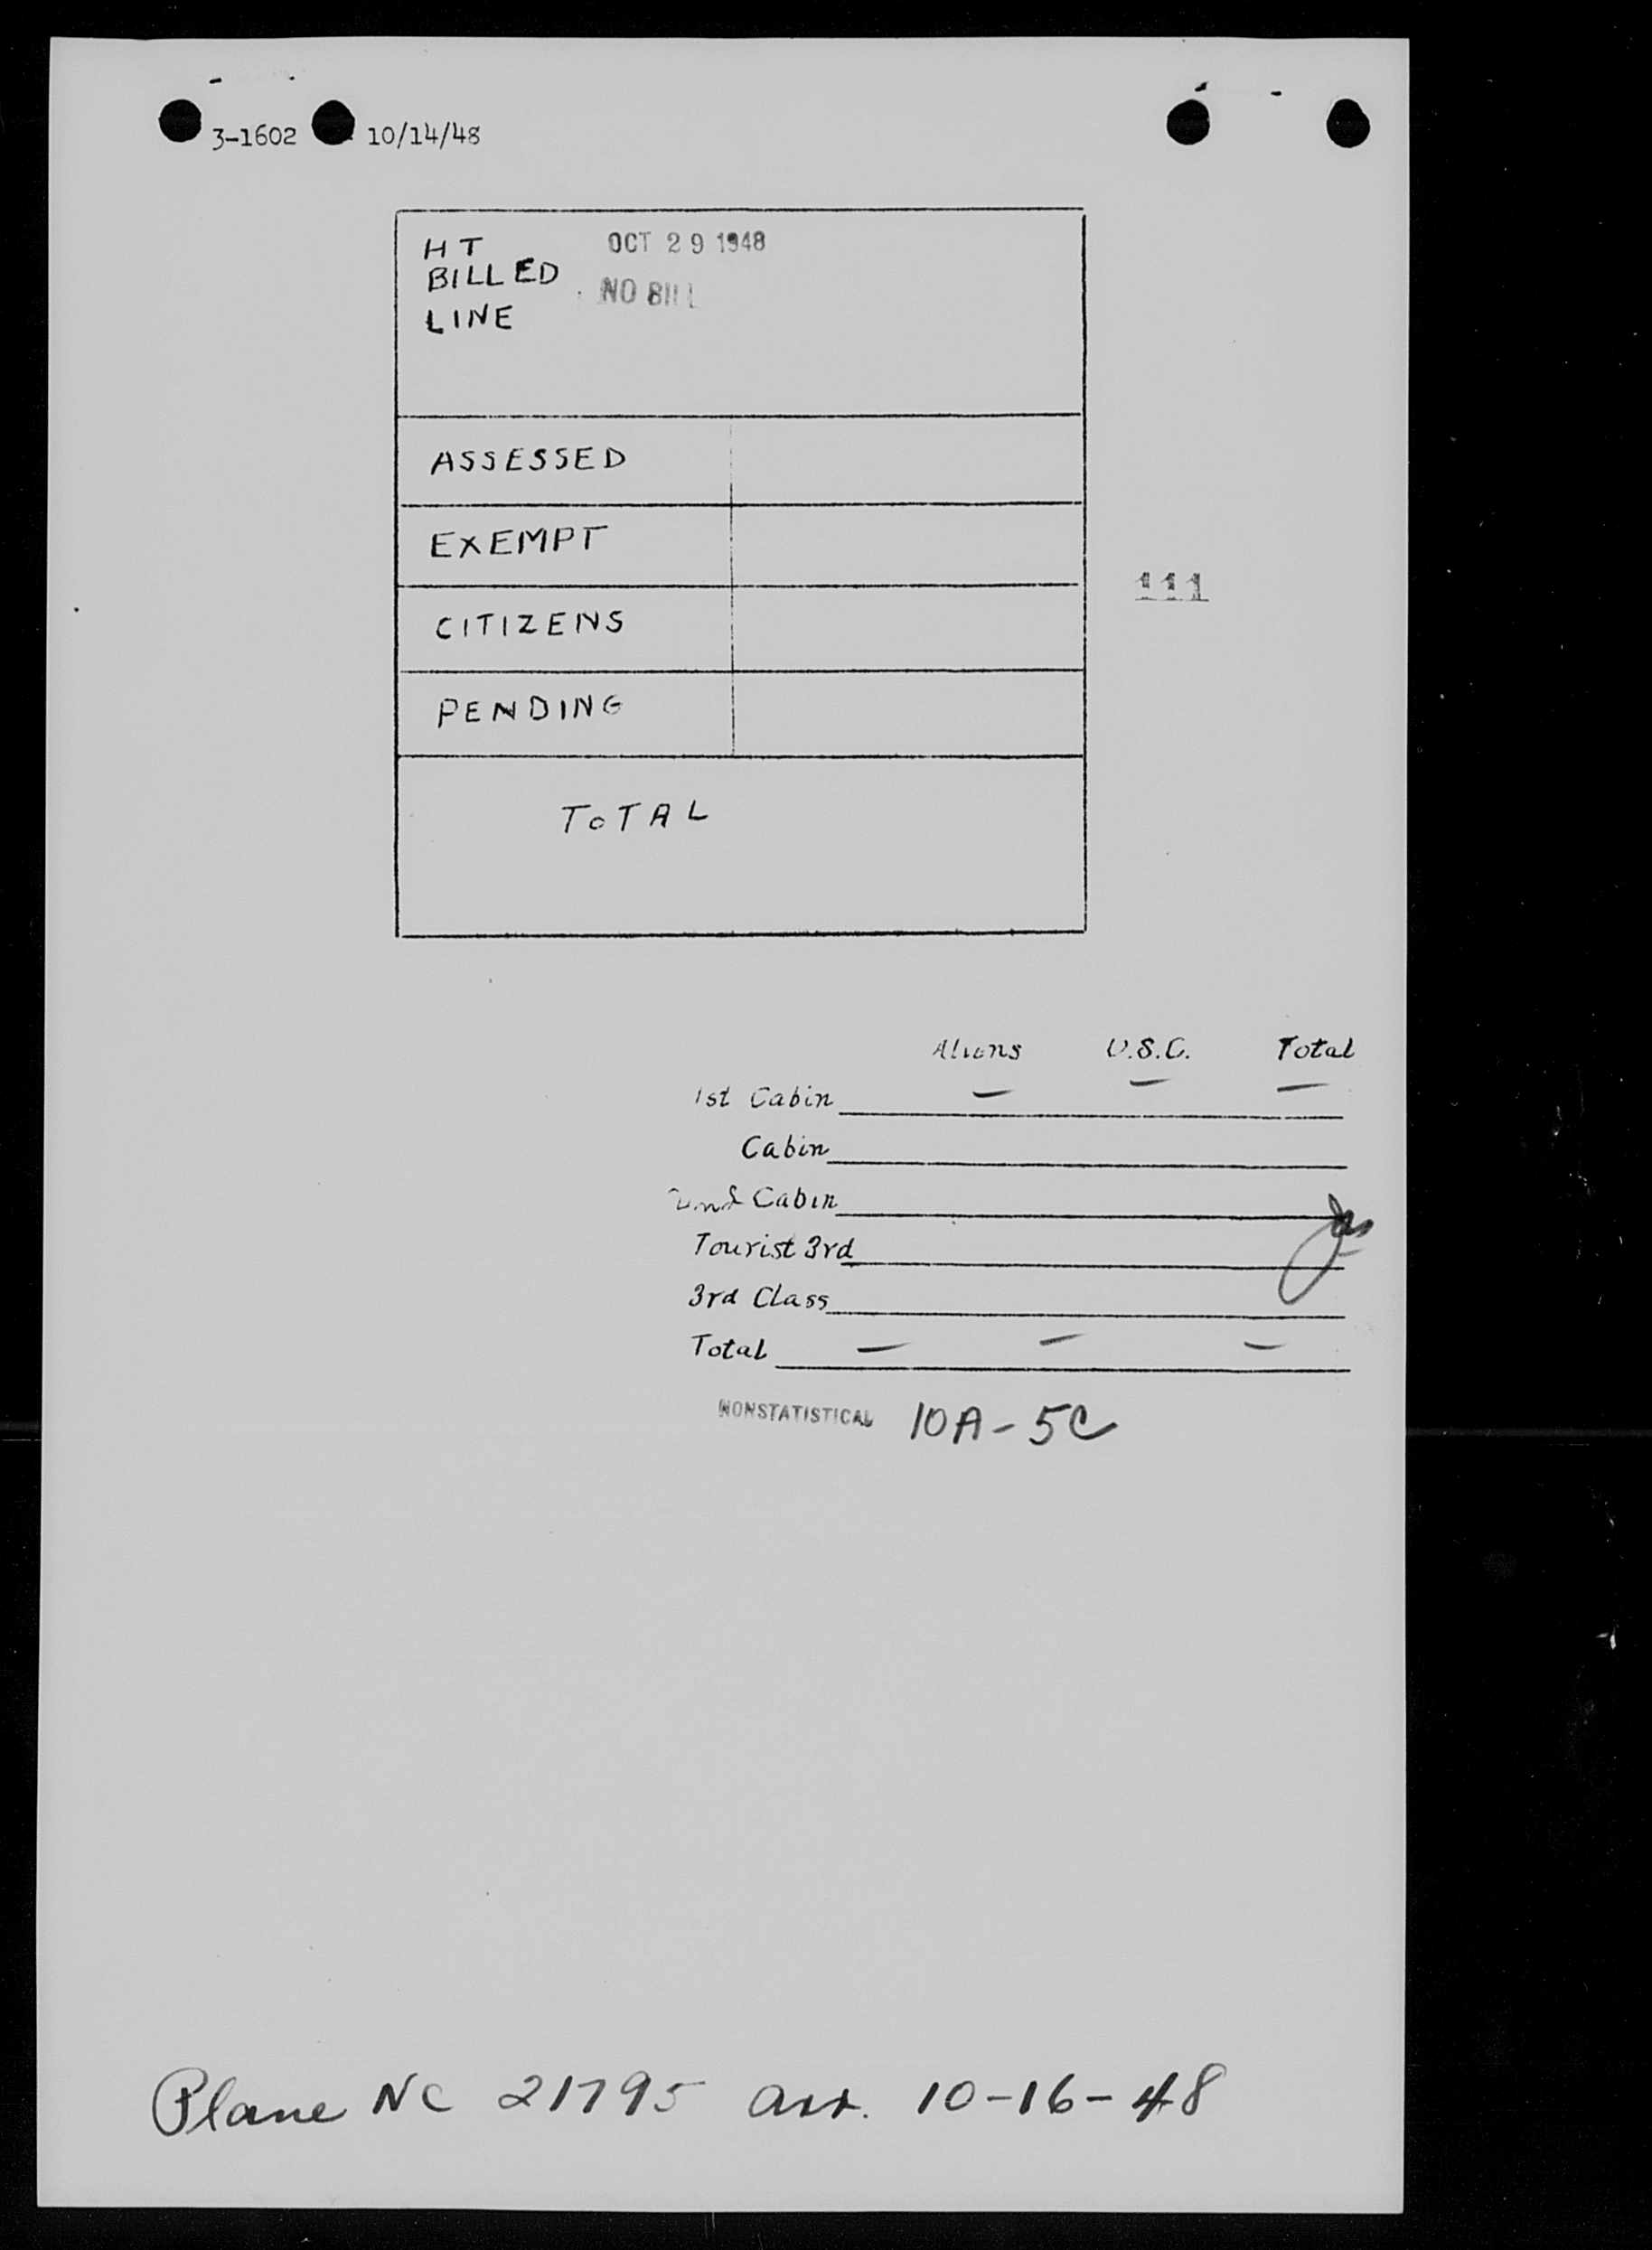 3-1602 10/14/48
HT OCT 29 1948
BILLED NO BILL
LINE
ASSESSED
EXEMPT
111
CITIZENS
PENDING
TOTAL
Aliens U.S.C. Total
1st Cabin — — —
Cabin
2nd Cabin
Tourist 3rd
3rd Class
Total — — —
NONSTATISTICAL 10A-5C
Plane NC 21795 arr. 10-16-48